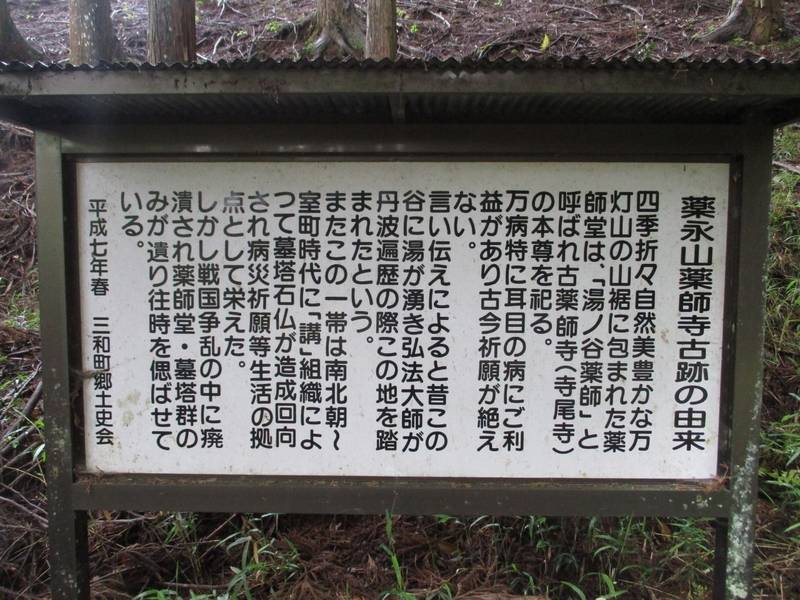 薬永山薬師寺古跡の由来
四季折々自然美豊かな万
灯山の山裾に包まれた薬
師堂は、「湯ノ谷薬師」と
呼ばれ古薬師寺(寺尾寺)
の本尊を祀る。
万病特に耳目の病にご利
益があり古今祈願が絶え
ない。
言い伝えによると昔この
谷に湯が湧き弘法大師が
丹波遍歴の際この地を踏
まれたという。
またこの一帯は南北朝~
室町時代に「講」組織によ
つて墓塔石仏が造成回向
され病災祈願等生活の拠
点として栄えた。
しかし戦国争乱の中に廃
潰され薬師堂・墓塔群の
みが遺り往時を偲ばせて
いる。
平成七年春 三和町郷土史会